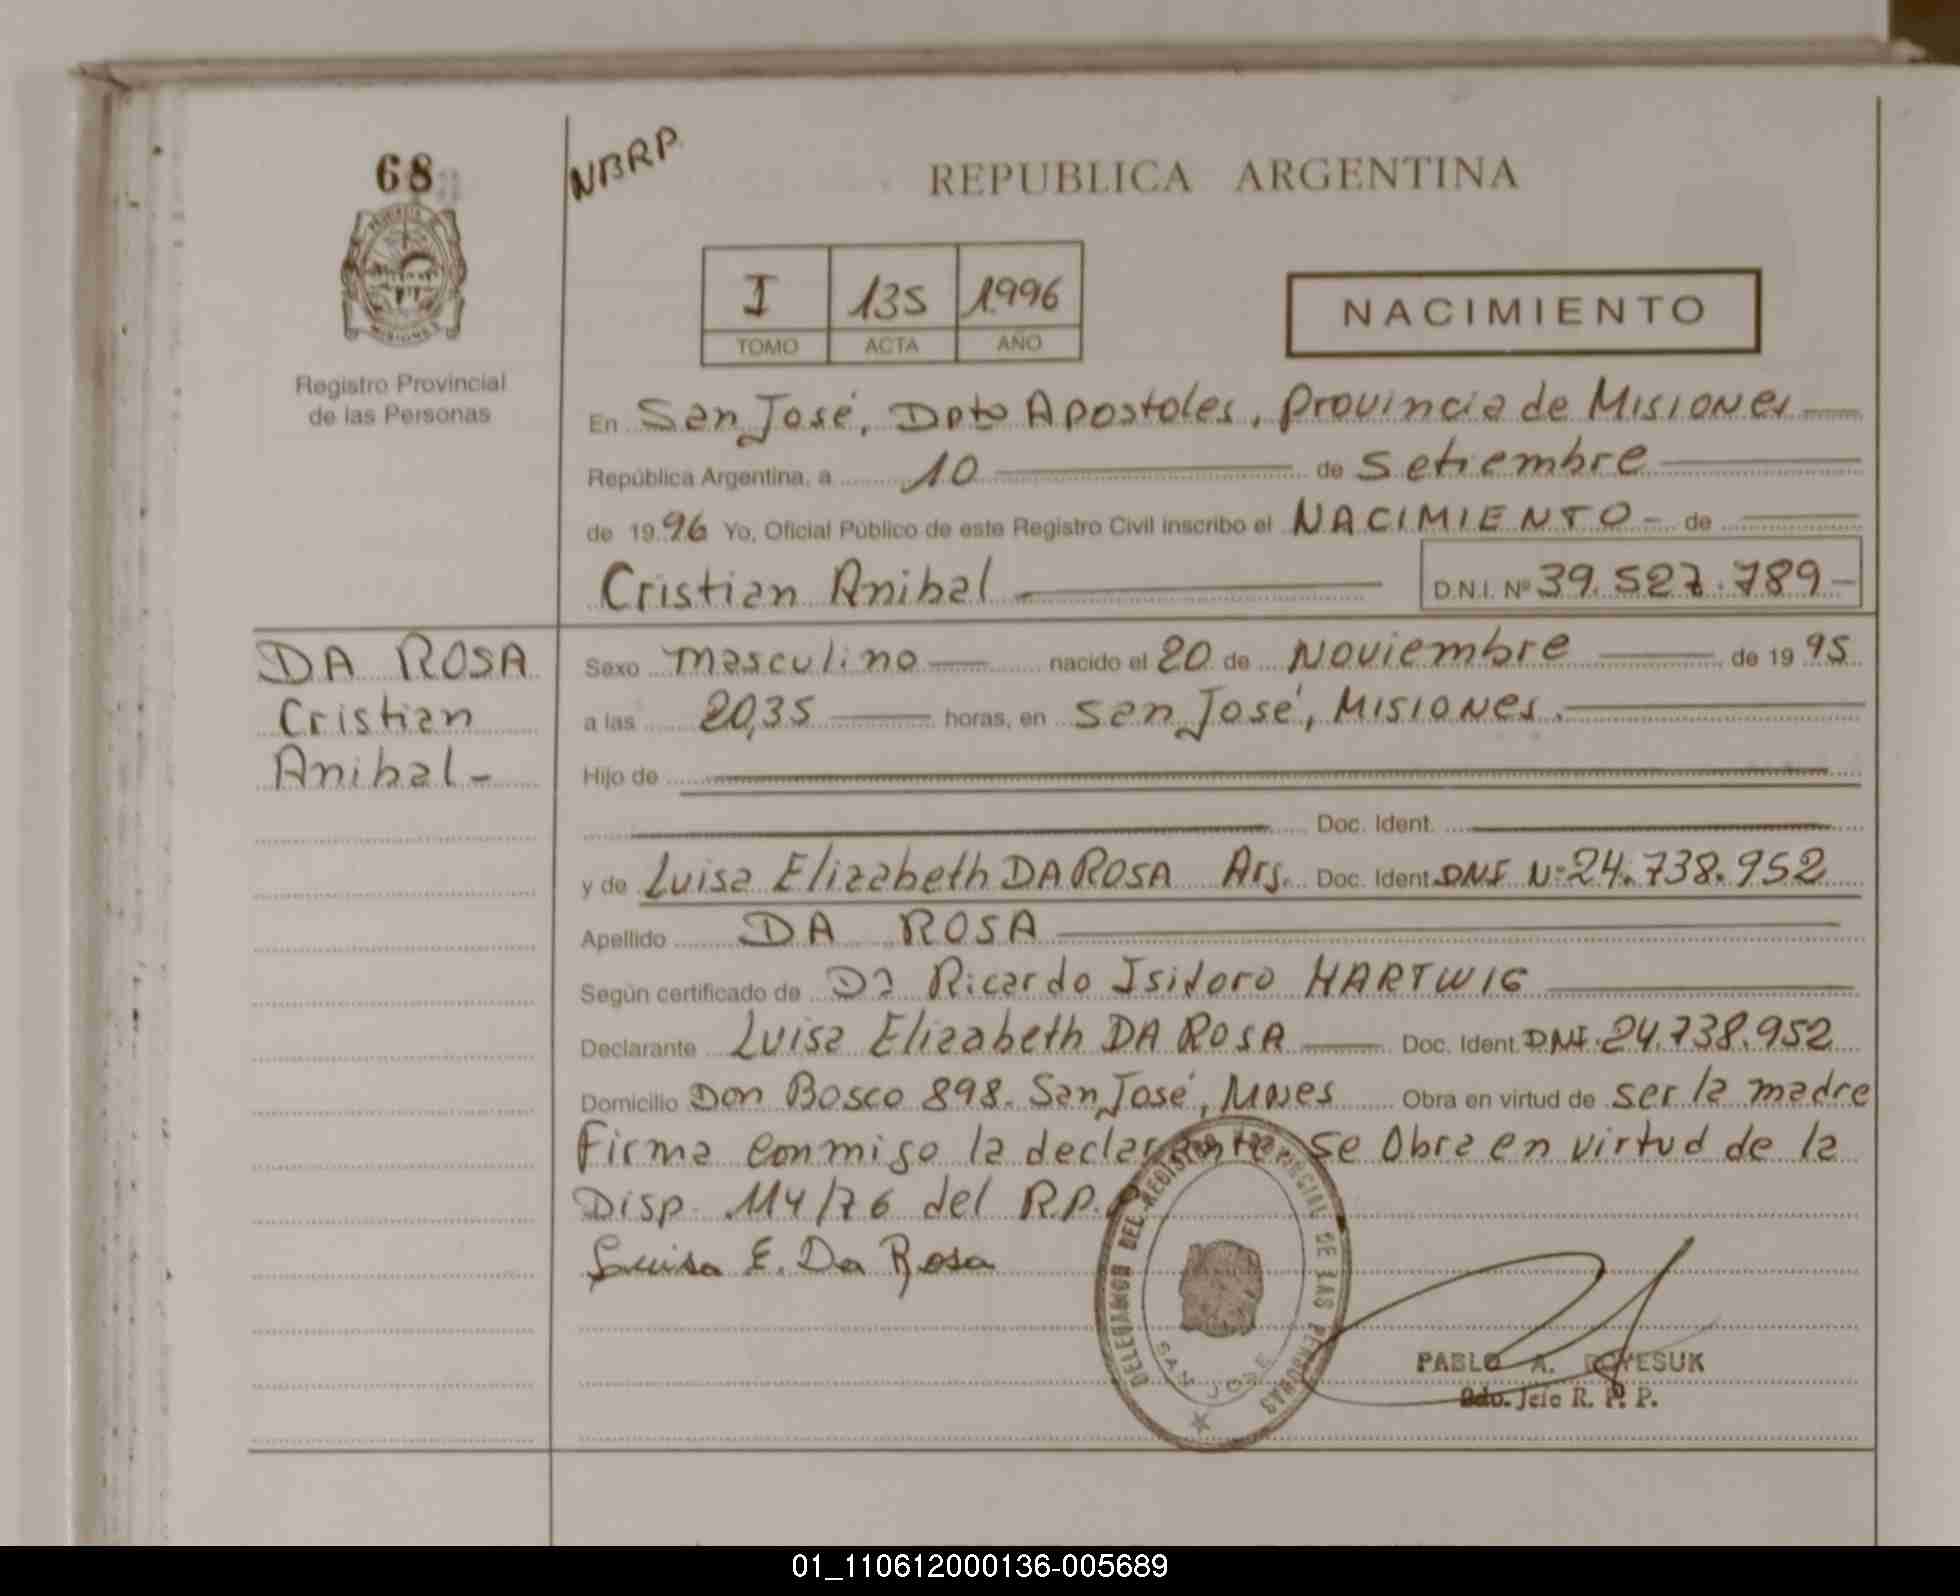 68
NBRP
REPUBLICA ARGENTINA
PROVINCIA DE
MISIONES
Registro Provincial
de las Personas
I 135 1996
TOMO ACTA AÑO
NACIMIENTO
En San José, Dpto Apostoles, Provincia de Misiones
República Argentina, a 10 de Setiembre
de 1996 Yo, Oficial Público de este Registro Civil inscribo el NACIMIENTO - de
Cristian Anibal D.N.I. Nº 39.527.789-
DA ROSA
Cristian
Anibal-
Sexo masculino nacido el 20 de Noviembre de 1995
a las 20,35 horas, en San José, Misiones.
Hijo de
Doc. Ident.
y de Luisa Elizabeth DA ROSA Arg. Doc. Ident. DNI Nº 24.738.952
Apellido DA ROSA
Según certificado de Dr Ricardo Isidoro HARTWIG
Declarante Luisa Elizabeth DA ROSA Doc. Ident. DNI. 24.738.952
Domicilio Don Bosco 898. San José, Mnes Obra en virtud de ser la madre
Firma conmigo la declarante. Se Obra en virtud de la
Disp. 114/76 del R.P.P
Luisa E. Da Rosa
DELEGACION DEL REGISTRO PROVINCIAL DE LAS PERSONAS
SAN JOSE
PABLO A.
Jefe R. P. P.
01_110612000136-005689